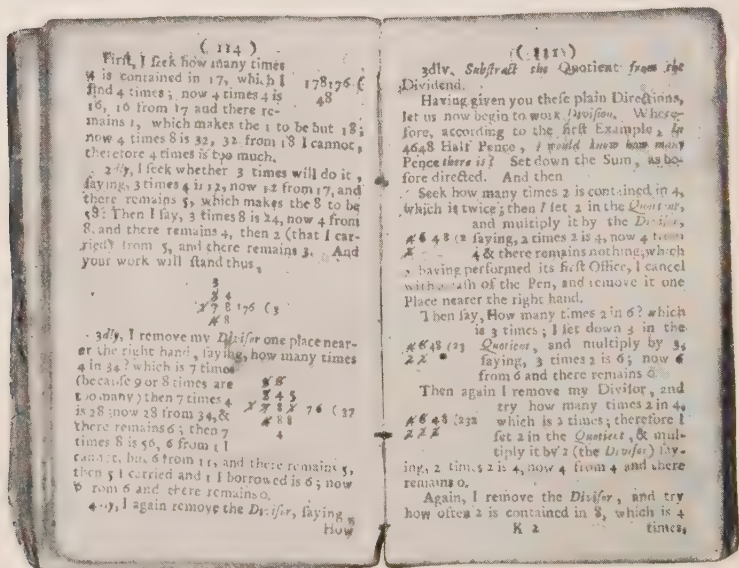 ( 114 )
First, I ſeek how many times
4 is contained in 17, which I
find 4 times; now 4 times 4 is
16, 16 from 17 and there re-
mains 1, which makes the 1 to be but 18;
now 4 times 8 is 32, 32 from 18 I cannot,
therefore 4 times is too much.
178176 (
48
2dly, I ſeek whether 3 times will do it,
ſaying, 3 times 4 is 12, now 12 from 17, and
there remains 5, which makes the 8 to be
58: Then I ſay, 3 times 8 is 24, now 4 from
8, and there remains 4, then 2 (that I car-
ried) from 5, and there remains 3. And
your work will ſtand thus,
3
5 4
1 7 8 176 (3
4 8
3dly, I remove my Diviſor one place near-
er the right hand, ſaying, how many times
4 in 34? which is 7 times
(becauſe 9 or 8 times are
too many) then 7 times 4
is 28; now 28 from 34, &
there remains 6; then 7
times 8 is 56, 6 from 1 I
cannot, but 6 from 11, and there remains 5,
then 5 I carried and 1 I borrowed is 6; now
6 from 6 and there remains 0.
8 4 5
1 7 8 1 76 (37
4 8 8
4
4thly, I again remove the Diviſor, ſaying,
How
3dly. Subſtract the Quotient from the
Dividend.
Having given you theſe plain Directions,
let us now begin to work Diviſion. Where-
fore, according to the firſt Example, In
4648 Half Pence, I would know how many
Pence there is? Set down the Sum, as be-
fore directed. And then
Seek how many times 2 is contained in 4,
which is twice; then I ſet 2 in the Quotient,
and multiply it by the Diviſor,
4 6 4 8 (2 ſaying, 2 times 2 is 4, now 4 from
2 4 & there remains nothing; which
2 having performed its firſt Office, I cancel
with a daſh of the Pen, and remove it one
Place nearer the right hand.
Then ſay, How many times 2 in 6? which
is 3 times; I ſet down 3 in the
4 6 48 (23 Quotient, and multiply by 3,
2 2 ſaying, 3 times 2 is 6; now 6
from 6 and there remains 0.
Then again I remove my Diviſor, and
try how many times 2 in 4,
4 6 4 8 (232 which is 2 times; therefore I
2 2 2 ſet 2 in the Quotient, & mul-
tiply it by 2 (the Diviſor) ſay-
ing, 2 times 2 is 4, now 4 from 4 and there
remains 0.
Again, I remove the Diviſor, and try
how often 2 is contained in 8, which is 4
K 2 times,